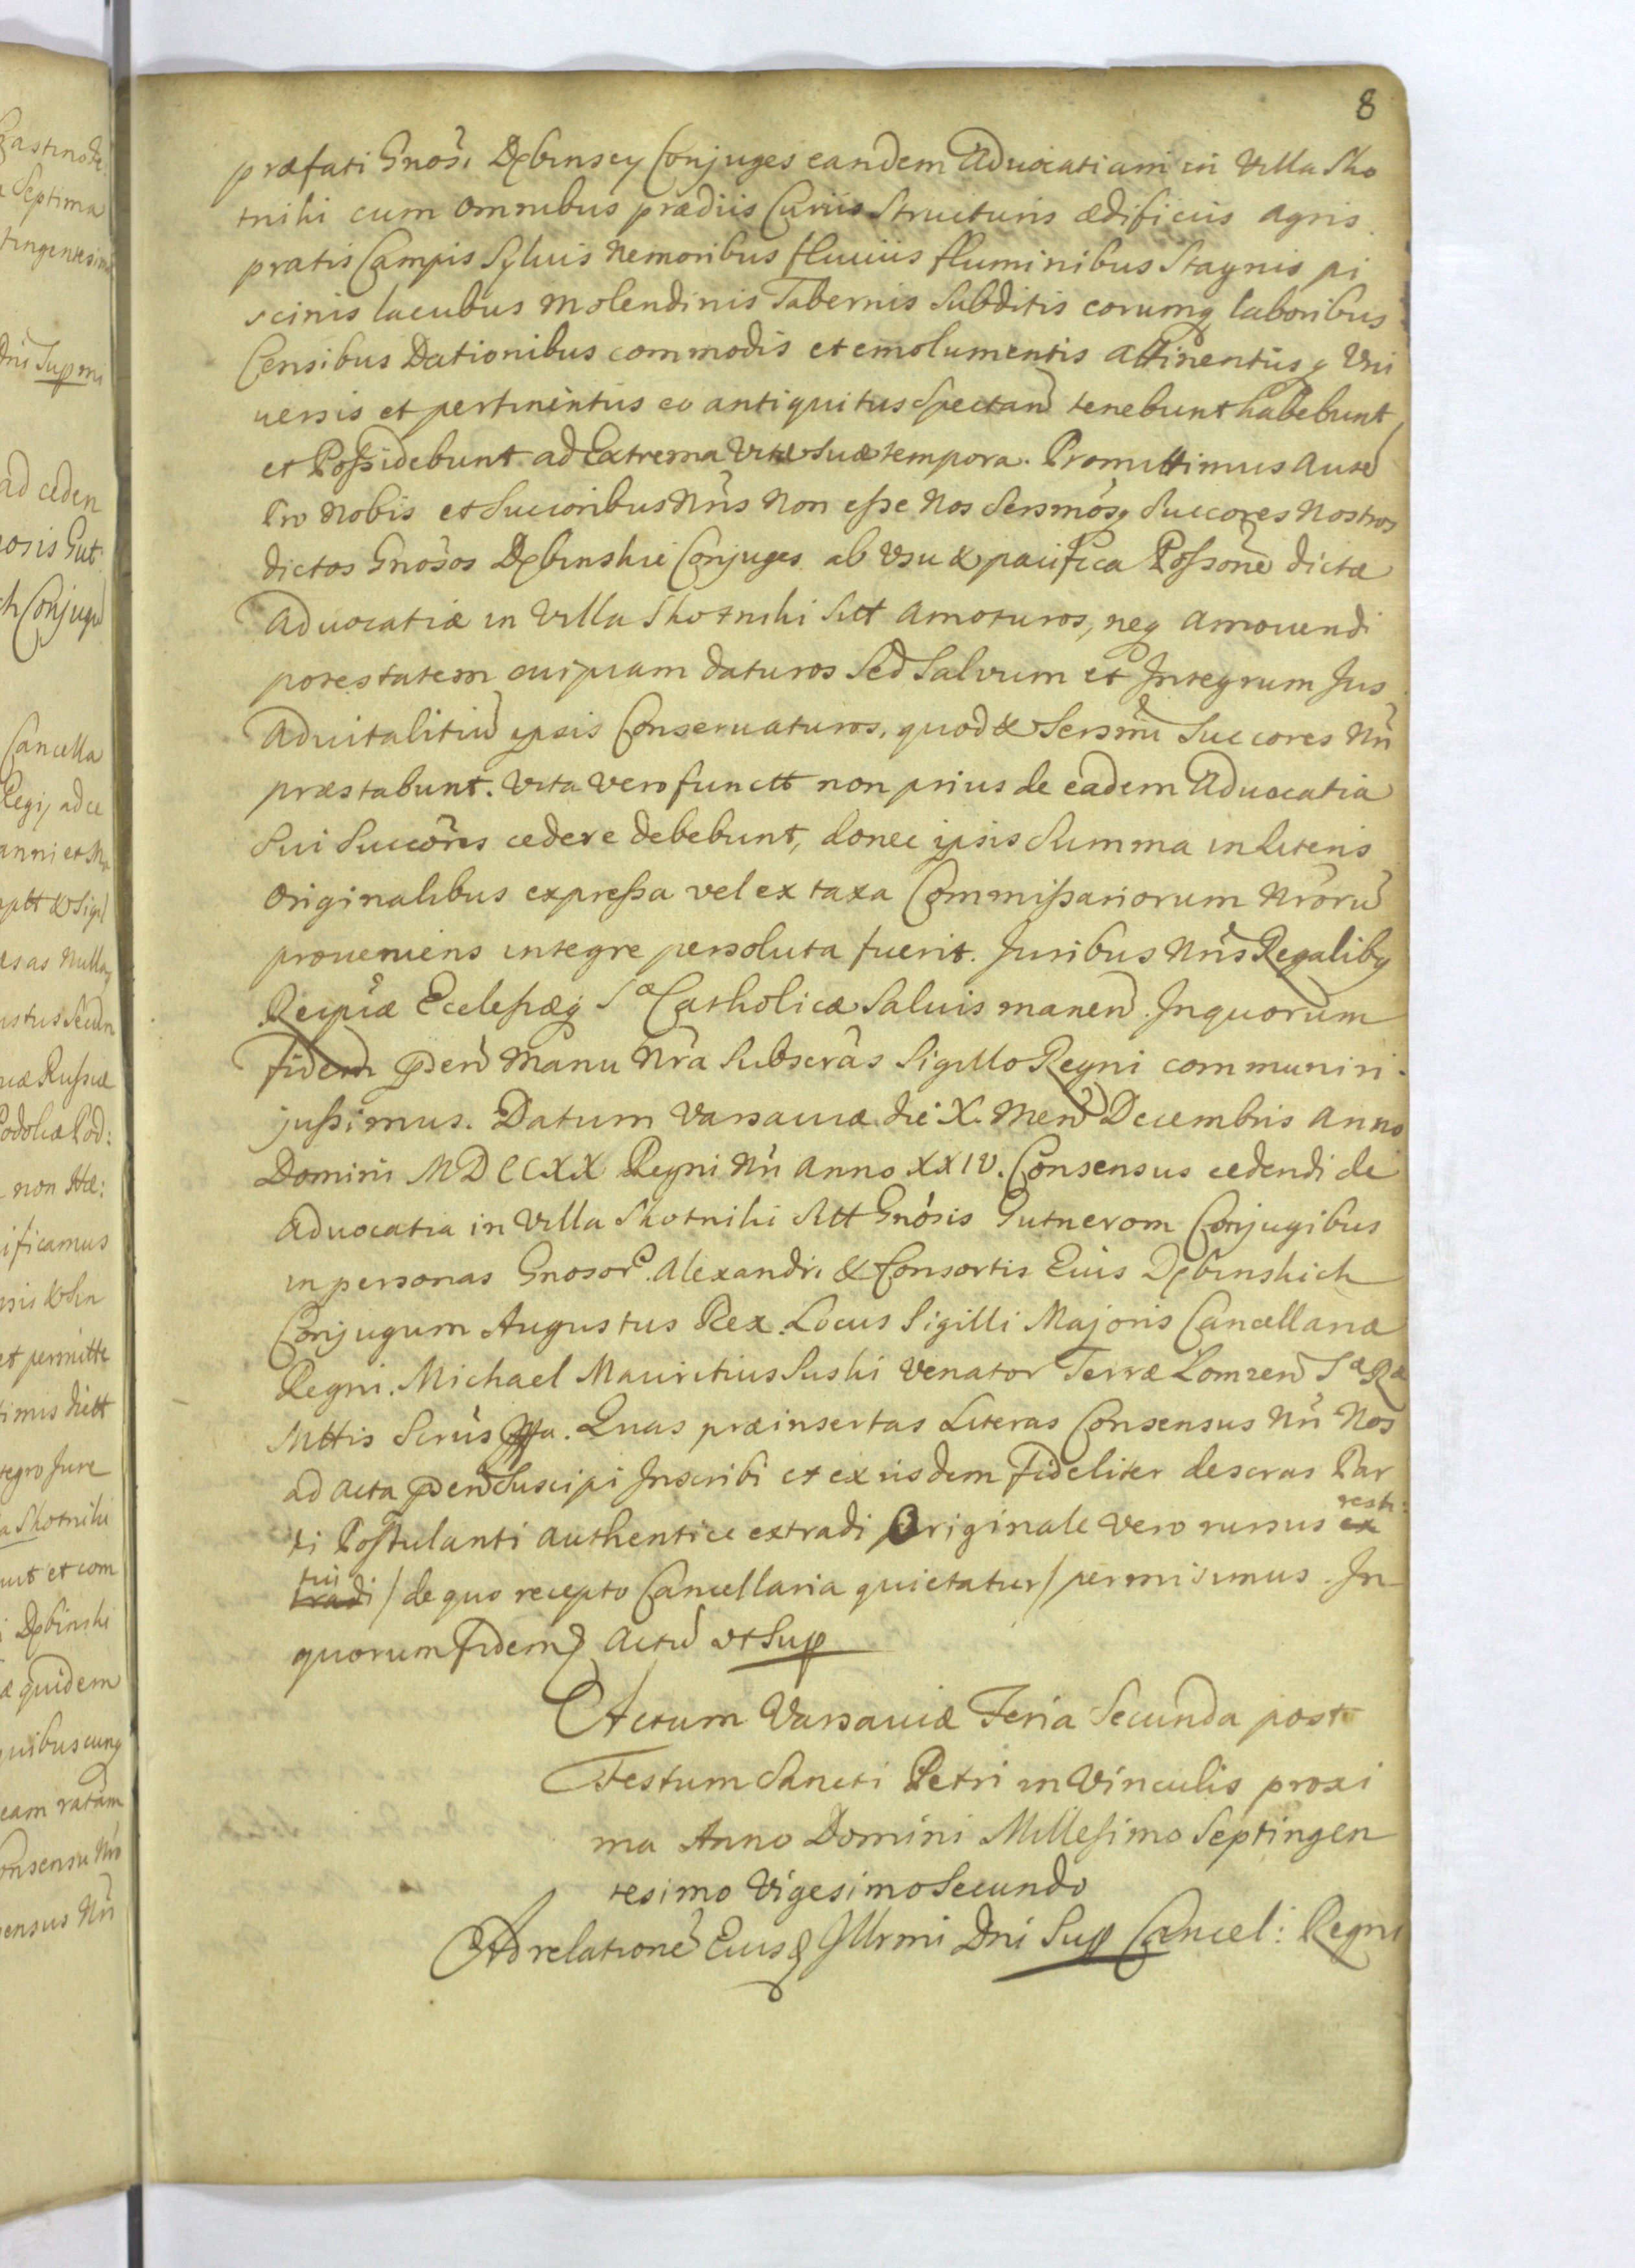 8
præfati Gnosi Dębinscy Conjuges eandem Aduocatiam in Villa Sko
tniki cum omnibus prædiis Curiis Structuris ædificiis agris
pratis Campis Syluis Nemoribus fluuiis fluminibus Stagnis pi
scinis lacubus Molendinis Tabernis Subditis eorumq laboribus
Censibus Dationibus commodis et emolumentis attinentiis q Vni
uersis et pertinentiis eo antiquitus Spectan tenebunt habebunt
et Possidebunt ad Extrema Vitæ suæ tempora. Promittimus Aute
Pro Nobis et Succoribus Nris Non esse Nos Sersmosq Succores Nostros
dictos Gnosos Dębinskie Conjuges ab Vsu & pacifica Possone dictæ
Aduocatiæ in Villa Skotniki Sitt amoturos, neq amouendi
potestatem cuipiam daturos Sed Saluum et Integrum Jus
Aduitalitiu ipsis Conseruaturos, quod & Sersmi Succores Nri
præstabunt. Vita Vero functt non prius de eadem Aduocatia
Sui Succores cedere debebunt, donec ipsis Summa in literis
Originalibus expressa vel ex taxa Commissariorum Nroru
proueniens integre persoluta fuerit. Juribus Nris Regalibq
Reipiæ Ecclesiæq Sæ Catholicæ Saluis manen. In quorum
fidem pden Manu Nra Subscras Sigillo Regni communiri
jussimus. Datum Varsauiæ die X. Men Decembris Anno
Domini MDCCXX Regni Nri Anno XXIV. Consensus cedendi de
Aduocatia in Villa Skotniki Sitt Gnosis Gutnerom Conjugibus
in personas Gnosor Alexandri & Consortis Eius Dębinskich
Conjugum Augustus Rex. Locus Sigilli Majoris Cancellariæ
Regni. Michael Mauritius Suski Venator Terræ Lomzen Sæ Ræ
Mttis Scrius mppa. Quas præinsertas Literas Consensus Nri Nos
ad Acta pden Suscipi Inscribi et ex iisdem fideliter descras Par
ti Postulanti authentice extradi Originale Vero rursus ex resti:
tradi tui / de quo recepto Cancellaria quietatur / permisimus. In
quorum fidem Actu vt Sup
Actum Varsauiæ Feria Secunda post
Festum Sancti Petri in Vinculis proxi
ma Anno Domini Millesimo Septingen
tesimo Vigesimo Secundo
Ad relatione Eius Illrmi Dni Sup Cancel: Regni